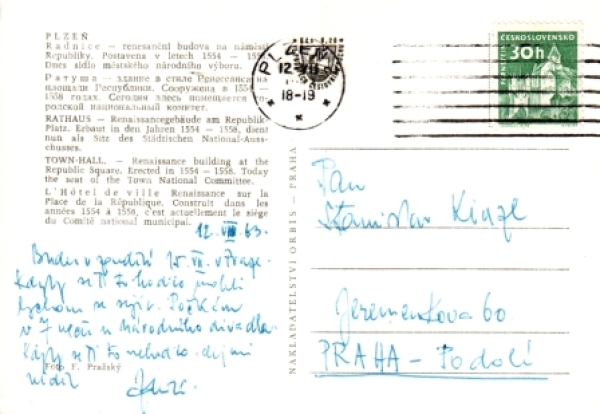 PLZEŇ
Radnice — renesanční budova na náměstí
Republiky. Postavena v letech 1554 – 155
Dnes sídlo městského národního výboru.
Ратуша — здание в стиле Ренессанса на
площади Республики. Сооружена в 1554 –
1558 годах. Сегодня здесь помещается го-
родской национальный комитет.
RATHAUS — Renaissancegebäude am Republik
Platz. Erbaut in den Jahren 1554 – 1558, dient
nun als Sitz des Städzischen National-Auss-
chusses.
TOWN-HALL, — Renaissance building at the
Republic Square. Erected in 1554 – 1558. Today
the seat of the Town National Committee.
L'Hôtel de ville Renaissance sur la
Place de la République. Construit dans les
années 1554 à 1558, c'est actuellement le siège
du Comité national municipal.
12. VII. 63.
Budu v pondělí 15. VII. v Praze.
Kdyby se Ti to hodilo mohli
bychom se sejít. Počkám
v 7 večer u Národního divadla.
Kdyby se Ti to nehodilo
Foto F. Pražský
NAKLADATELSTVÍ ORBIS — PRAHA
PLZEŇ
12.VII.
18-19
ČESKOSLOVENSKO
30h
Pan
Stanislav
Jeremenkova 60
PRAHA – Podolí